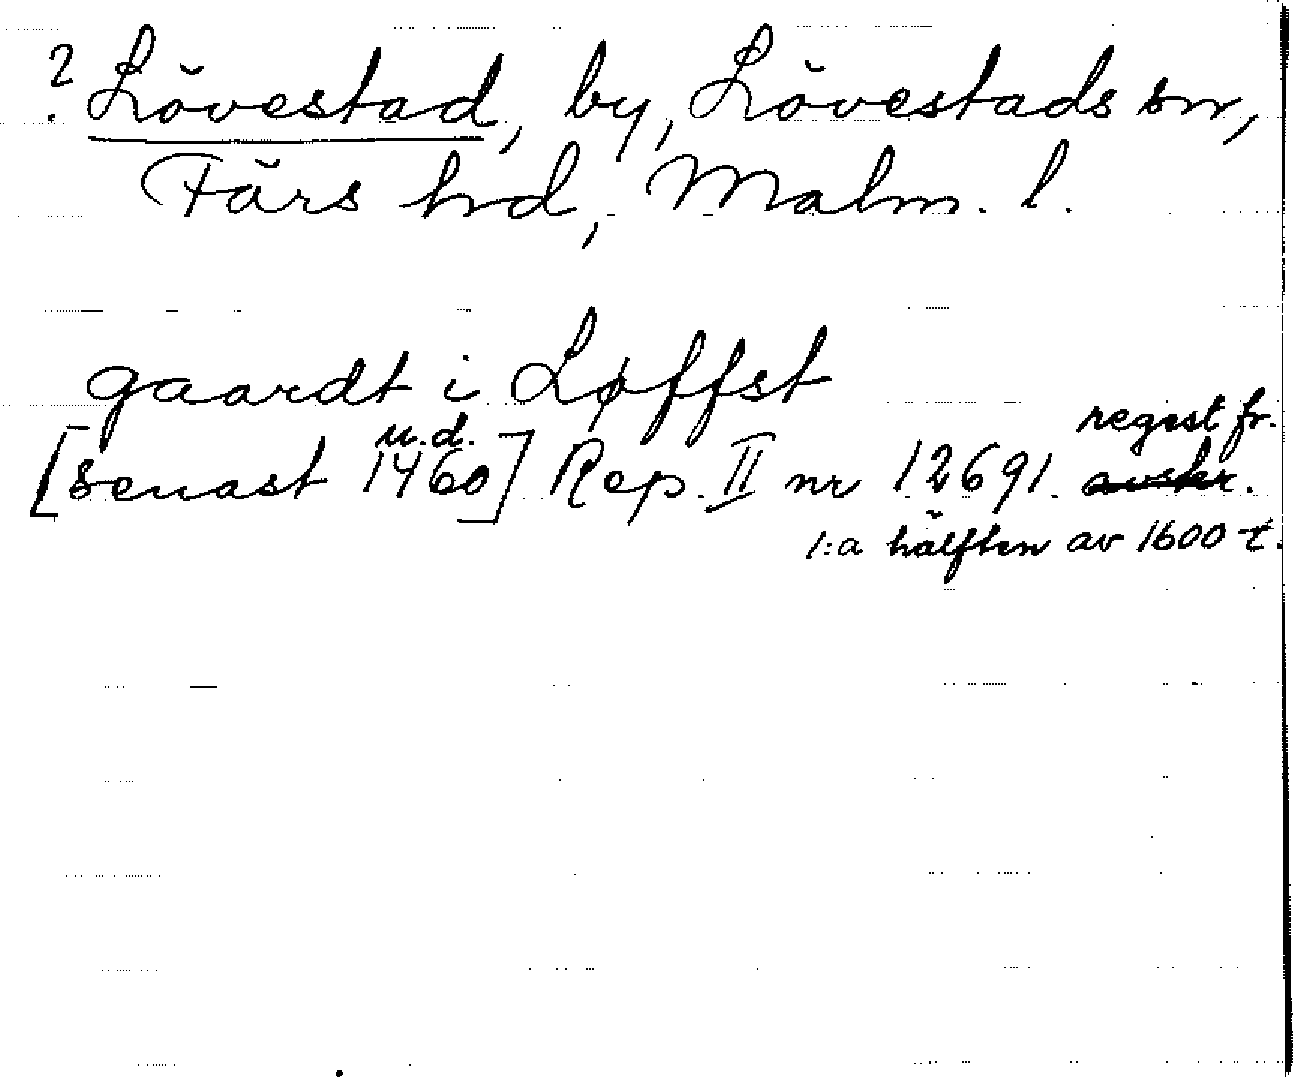 ? Lövestad, by, Lövestads sn,
Färs hd, Malm. l.
gaardt i Løffst
u.d. regest fr.
[senast 1460] Rep. II nr 12691. avskr.
1:a hälften av 1600-t.